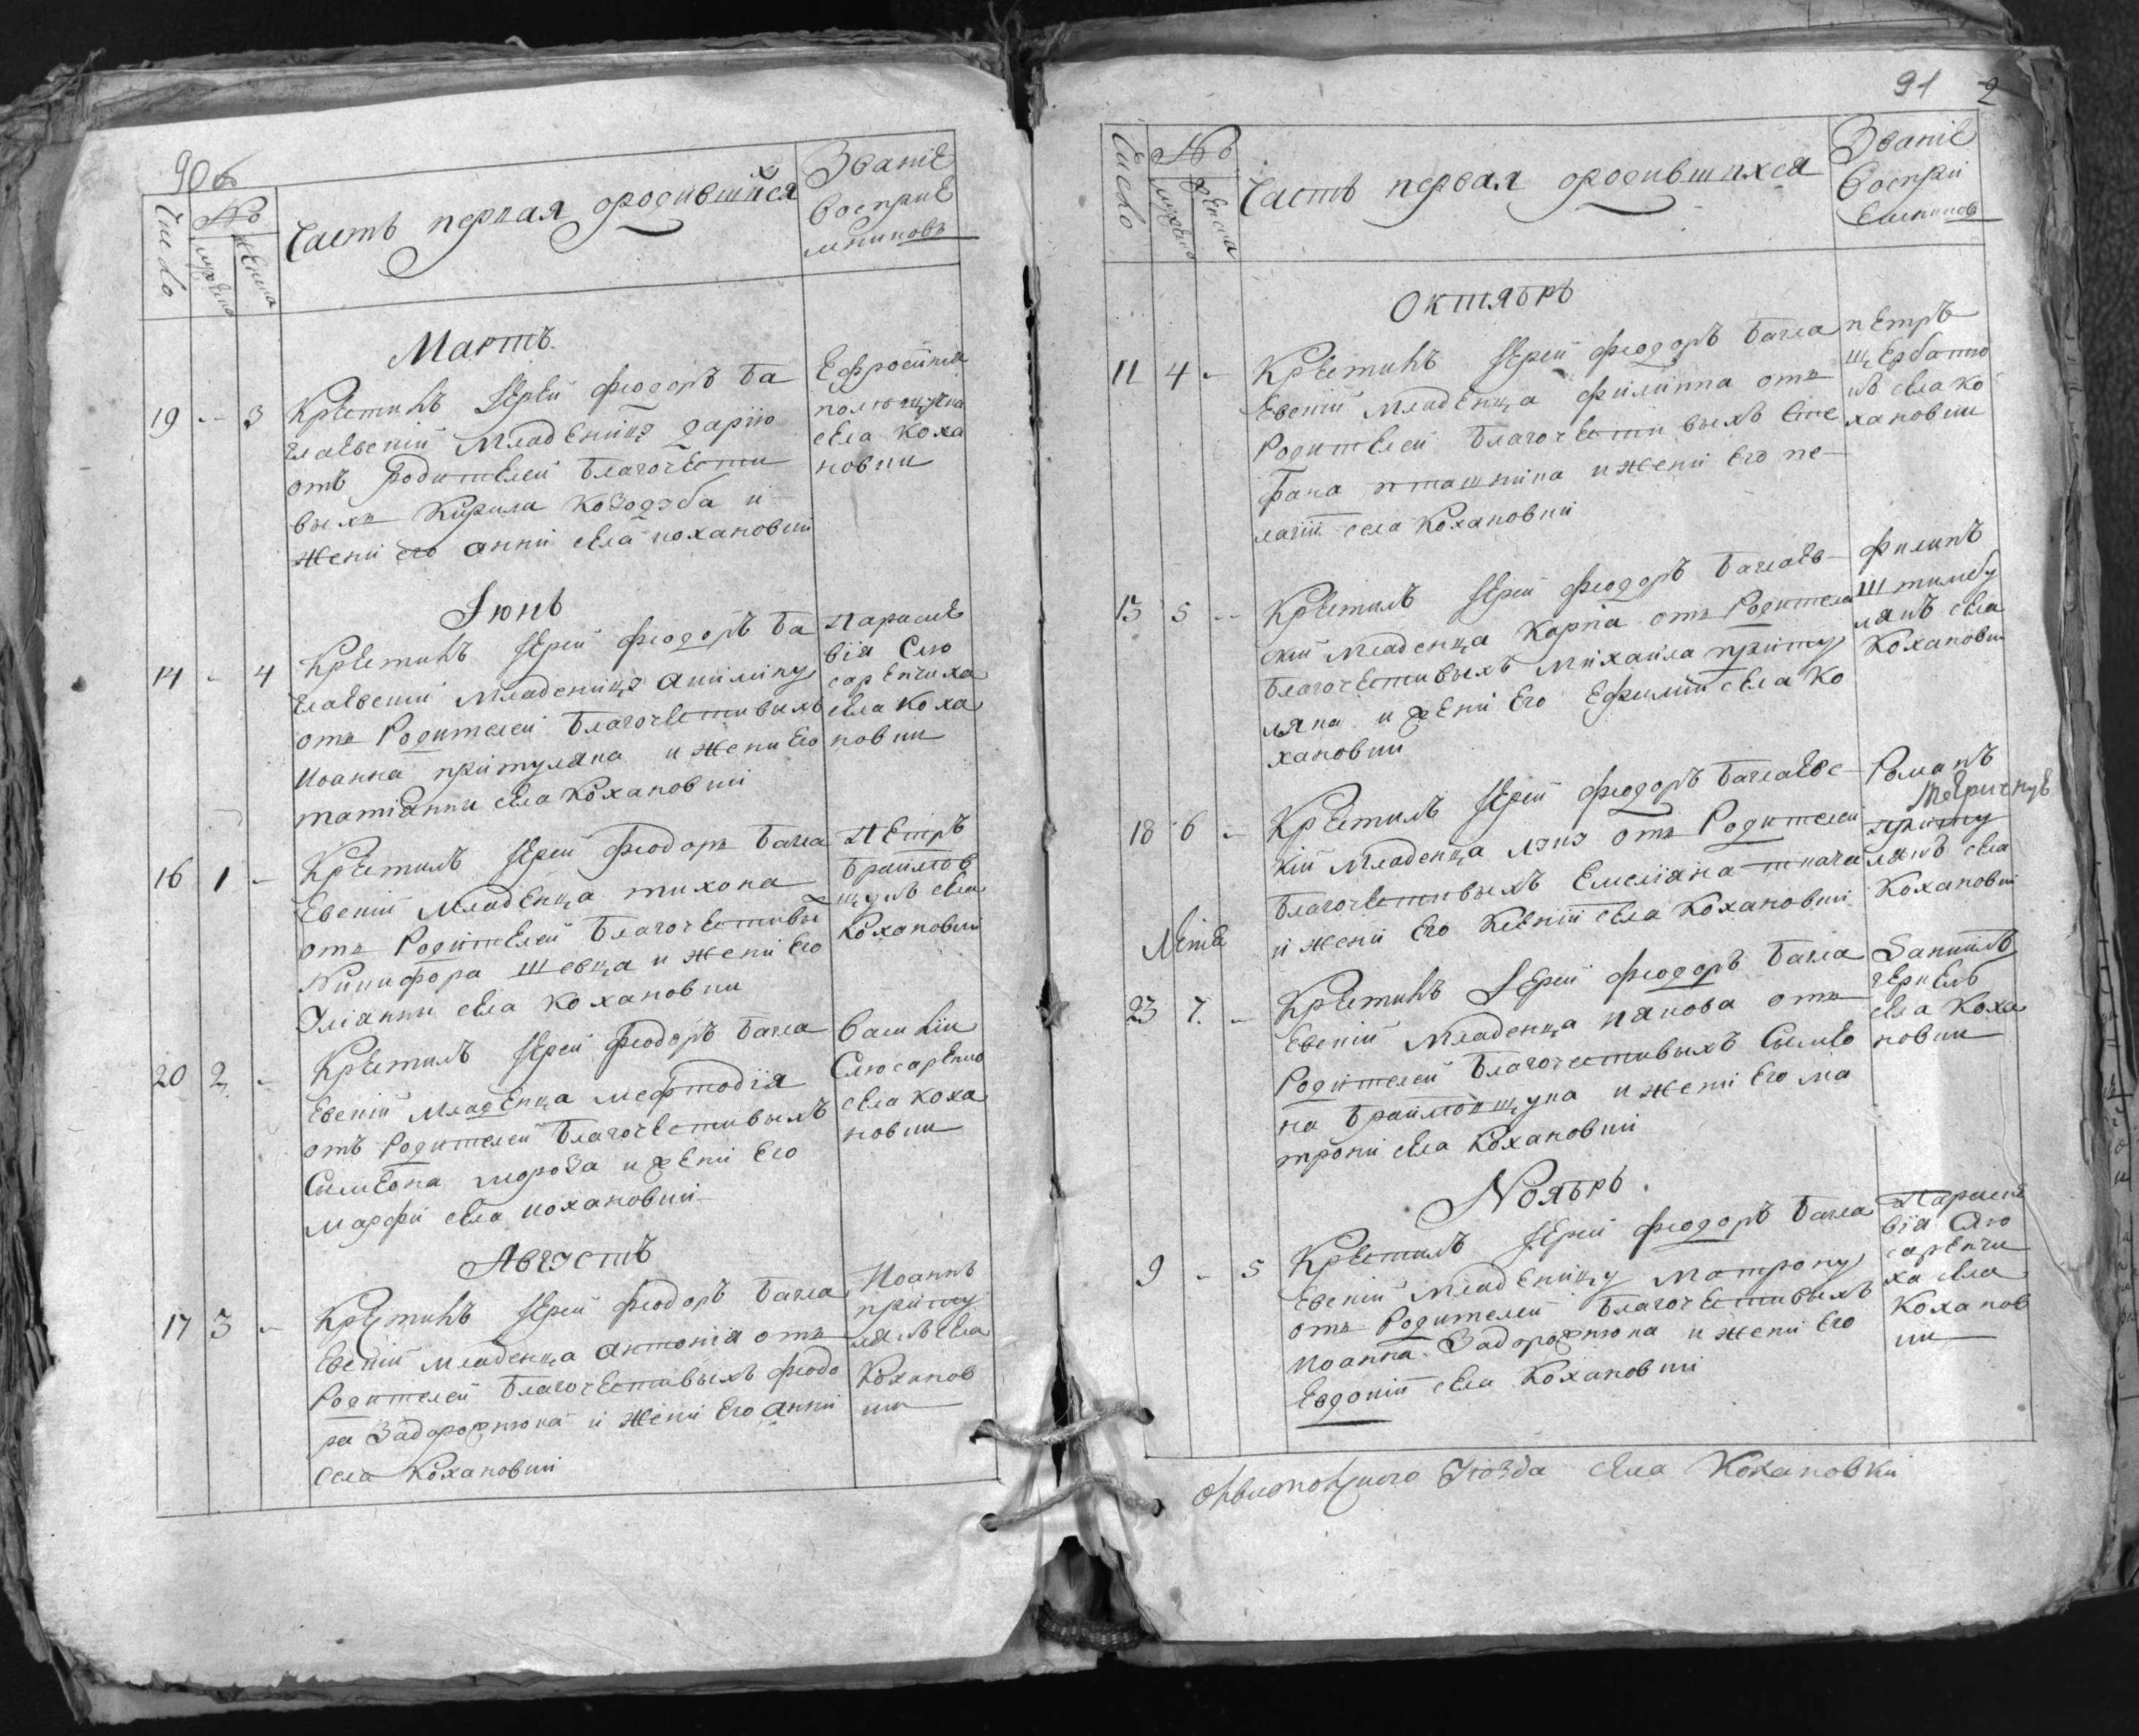 90 об
Число
№
мужеска
женска
Часть первая ородившихся
Званіе
Воспріе
мниковъ
Мартъ.
19 - 3
Крестилъ Іерей Феодоръ Ба
чаевскій Младеницу дарію
отъ Родителей Благочести
выхъ Кирила Козодуба и
жени его анни села кохановки
Ефросинія
села Коха
новки
Іюнь
14 - 4
Крестилъ Іерей Феодоръ Ба
чаевскій Младеницу акилину
отъ Родителей Благочестивыхъ
Иоанна притуляка и жени Его
татіанни села Кохановки
Параске
вія Слю
сарчиха
села Коха
новки
16 1 -
Крестилъ Іерей Феодоръ Бача
Евскій Младенца тихона
отъ Родителей Благочестивы
Никифора Шевца и жени Его
Уліанни села кохановки
Петръ
села
Кохановки
20 2 -
Крестилъ Іерей Феодоръ Бача
Евскій Младенца мефтодія
отъ Родителей Благочестивыхъ
Сымеона мороза и жени Его
марфи села кохановки
Василій
Слюсаренко
села коха
новки
Августъ
17 3 -
Крестилъ Іерей Феодоръ Бача
Евскій младенца антонія отъ
Родителей Благочестивыхъ Феодо
ра Задорожнюка и жени Его анни
Села Кохановки
Иоаннъ
приту
лякъ села
Коханов
ки
91
2
Число
№
мужеска
женска
Часть первая ородившихся
Званіе
Воспри
Емниковъ
Октябрь
11 4 -
Крестилъ Іерей Феодоръ Бача
Евскій Младенца филиппа отъ
Родителей Благочестивыхъ Сте
фана пташника и жени Его пе-
лагіи села Кохановки
петръ
щербатю
къ села ко
хановки
13 5 -
Крестилъ Іерей Феодоръ Бачаев-
скій Младенца Карпа отъ Родителей
Благочестивыхъ Михаила приту
ляка и жени Его Ефиміи села Ко
хановки
филипъ
лякъ села
Кохановки
18 6 -
Крестилъ Іерей Феодоръ Бачаевс-
кій Младенца луку отъ Родителей
Благочестивыхъ Емеліана ткача
и жени Его Ксеніи села Кохановки
Романъ
приту
лякъ села
Кохановки
23 7. -
Крестилъ Іерей Феодоръ Бача
Евскій Младенца якова отъ
Родителей Благочестивыхъ Сымео
на и жени Его ма
трони села Кохановки
Даніилъ
села Коха
новки
Ноябрь.
9 - 5
Крестилъ Іерей Феодоръ Бачаа
Евскій Младеницу Матрону
отъ Родителей Благочестивыхъ
Иоанна Задорожнюка и жени Его
Евдокіи села Кохановки
Параске
вія Слю
сарчи
ха села
Коханов
ки
Уезда села Кохановки